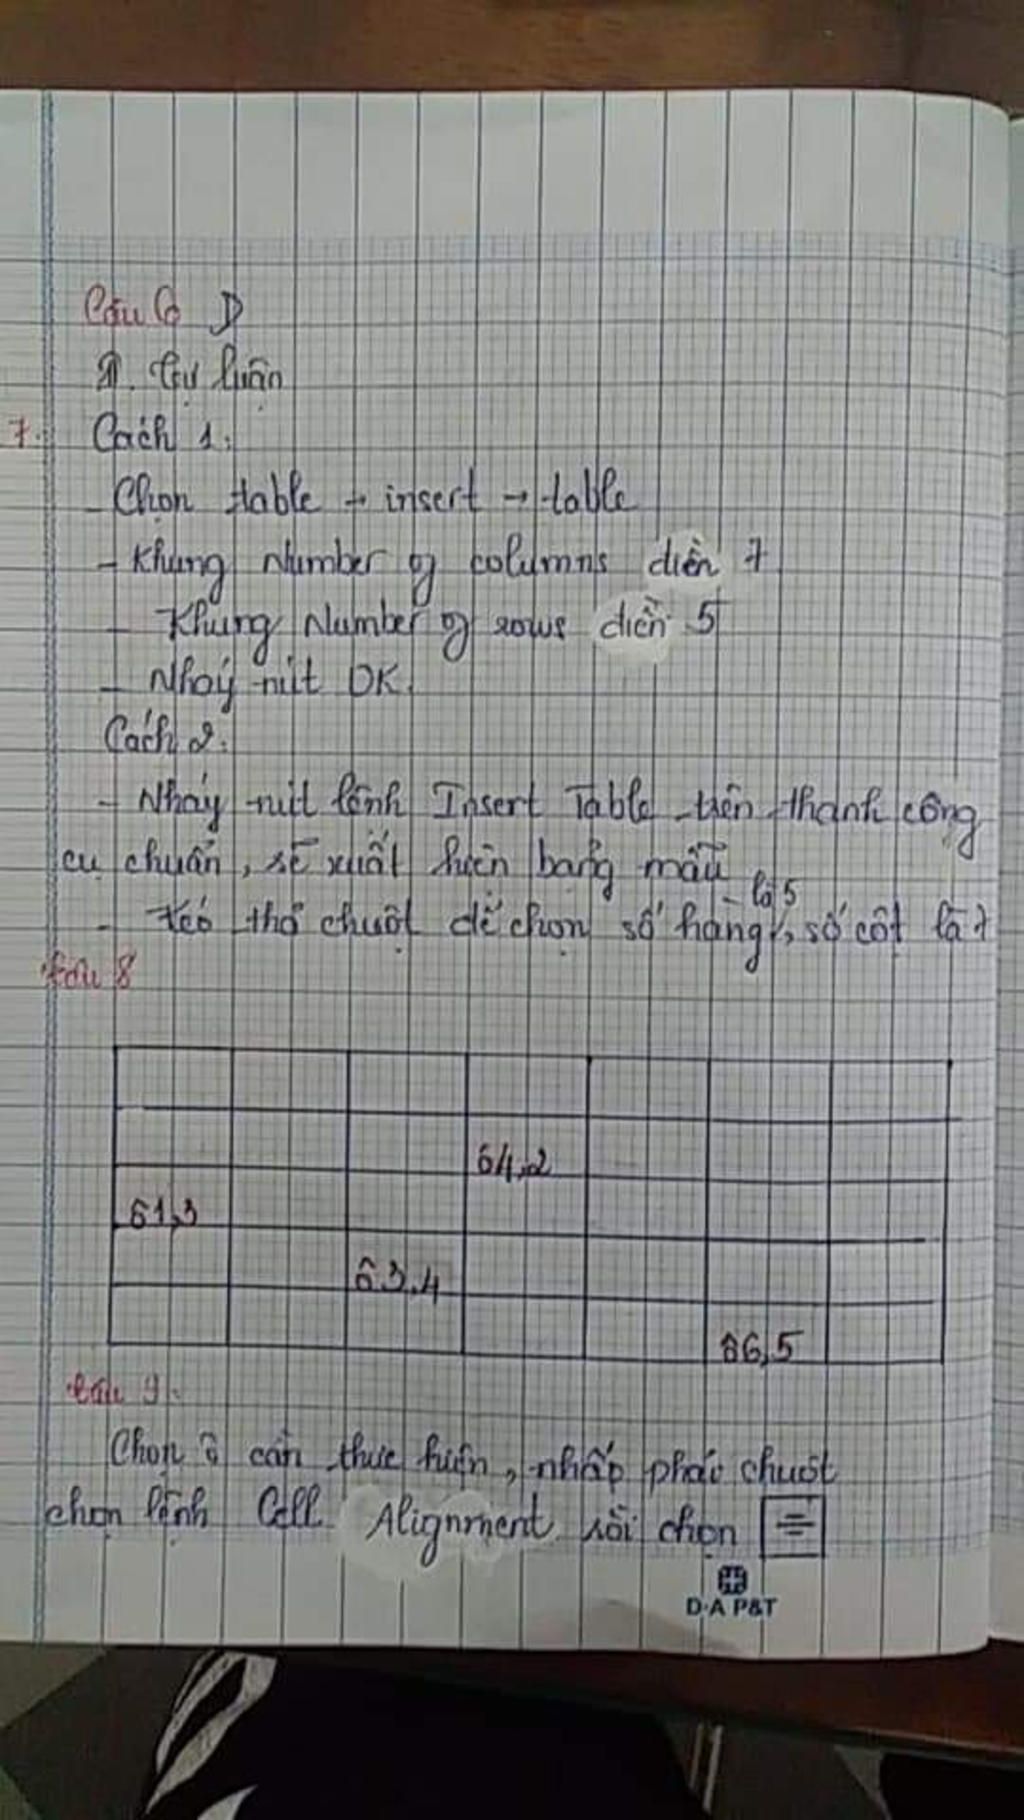 Câu 6 D
II. Tự luận
7. Cách 1:
- Chọn table → insert → table
- Khung Number of columns điền 7
- Khung Number of rows điền 5
- Nháy nút OK.
Cách 2:
- Nháy nút lệnh Insert Table trên thanh công
cụ chuẩn, sẽ xuất hiện bảng mẫu
- Kéo thả chuột để chọn số hàng là 5, số cột là 7
Câu 8
ô 4,2
ô 1,3
ô 3,4
ô 6,5
Câu 9.
Chọn ô cần thực hiện, nhấp phải chuột
chọn lệnh Cell Alignment rồi chọn
D·A P&T